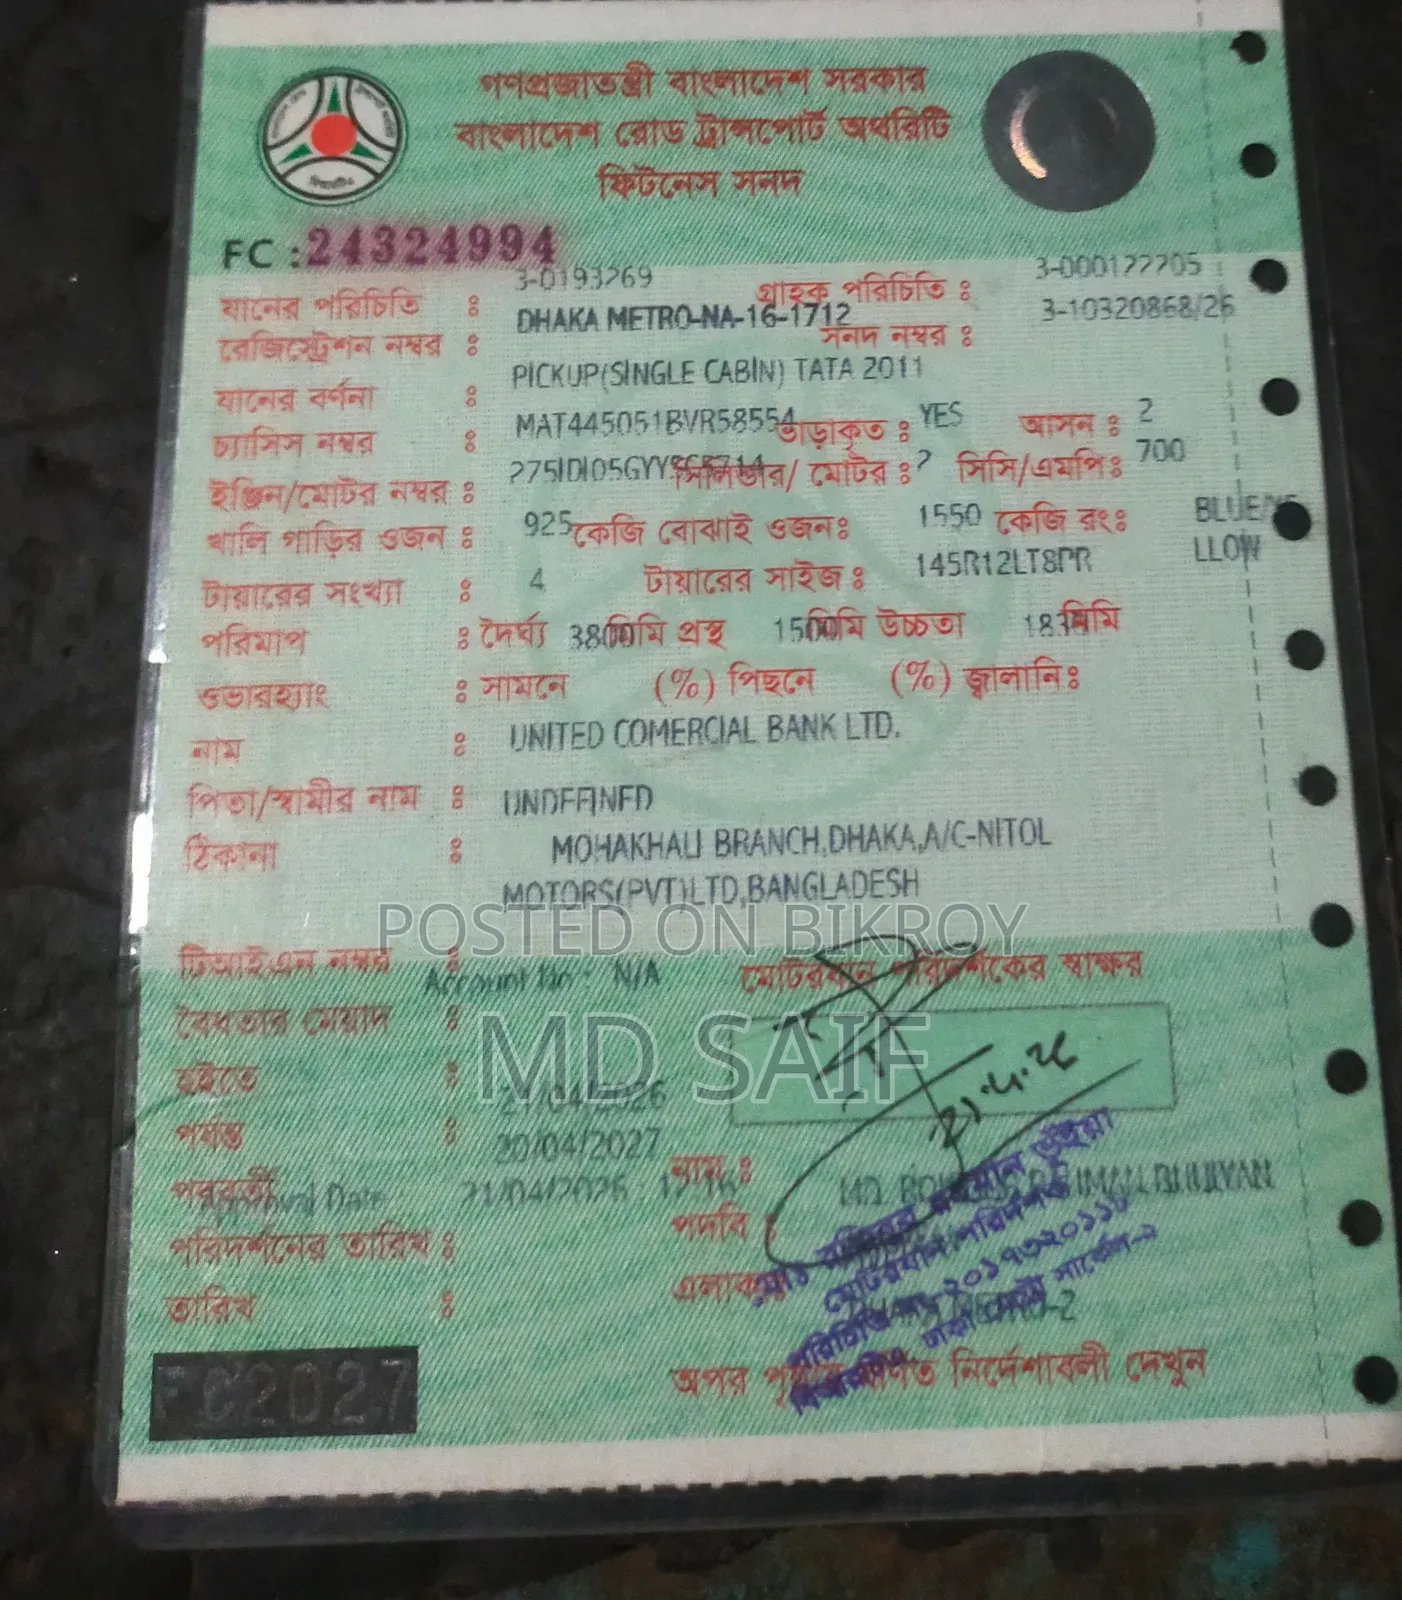 গণপ্রজাতন্ত্রী বাংলাদেশ সরকার
বাংলাদেশ রোড ট্রান্সপোর্ট অথরিটি
ফিটনেস সনদ
FC : 24324994
যানের পরিচিতি : 3-0193769 গ্রাহক পরিচিতি : 3-000177705
রেজিস্ট্রেশন নম্বর : DHAKA METRO-NA-16-1712 সনদ নম্বর : 3-10320868/26
যানের বর্ণনা : PICKUP(SINGLE CABIN) TATA 2011
চ্যাসিস নম্বর : MAT445051BVR58554 ভাড়াকৃত : YES আসন : 2
ইঞ্জিন/মোটর নম্বর : সিলিন্ডার/ মোটর : ? সিসি/এমপি: 700
খালি গাড়ির ওজন : 925 কেজি বোঝাই ওজন: 1550 কেজি রং: BLUE/YE
LLOW
টায়ারের সংখ্যা : 4 টায়ারের সাইজ : 145R12LT8PR
পরিমাপ : দৈর্ঘ্য 3800 মিমি প্রস্থ 1500 মিমি উচ্চতা মিমি
ওভারহ্যাং : সামনে (%) পিছনে (%) জ্বালানি:
নাম : UNITED COMERCIAL BANK LTD.
পিতা/স্বামীর নাম : UNDEFINED
ঠিকানা : MOHAKHALI BRANCH,DHAKA,A/C-NITOL
MOTORS(PVT)LTD,BANGLADESH
POSTED ON BIKROY
টিআইএন নম্বর : Account No : N/A মোটরযান পরিদর্শকের স্বাক্ষর
বৈধতার মেয়াদ :
MD SAIF
হইতে : 21/04/2026
21.4.26
পর্যন্ত : 20/04/2027
নাম :
পরবর্তী Date 21/04/2026
পদবি :
পরিদর্শনের তারিখ :
এলাকা
তারিখ :
FC2027
অপর পৃষ্ঠায় বর্ণিত নির্দেশাবলী দেখুন